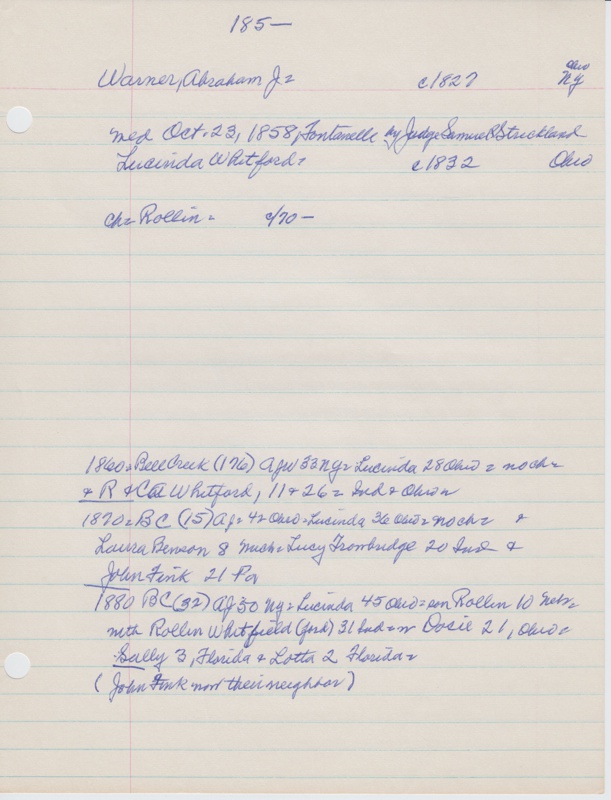 185—
Warner, Abraham J= c1827 Ohio NY
med Oct. 23, 1858, Fontanelle by Judge Samuel R Strickland
Lucinda Whitford= c1832 Ohio
ch= Rollin= c/70—
1860= Bell Creek (176) AJW 33 NY= Lucinda 28 Ohio= no ch=
& R & C Whitford, 11 & 26= Ind & Ohio=
1870= BC (15) AJ= 42 Ohio= Lucinda 36 Ohio= no ch= &
Laura Benson 8 Mich= Lucy Trowbridge 20 Ind &
John Fink 21 Pa
1880 BC (32) AJ 50 NY= Lucinda 45 Ohio= son Rollin 10 Nebr=
with Rollin Whitfield (ford) 31 Ind= w Dosie 21, Ohio=
Sally 3, Florida & Lotta 2 Florida=
(John Fink now their neighbor)